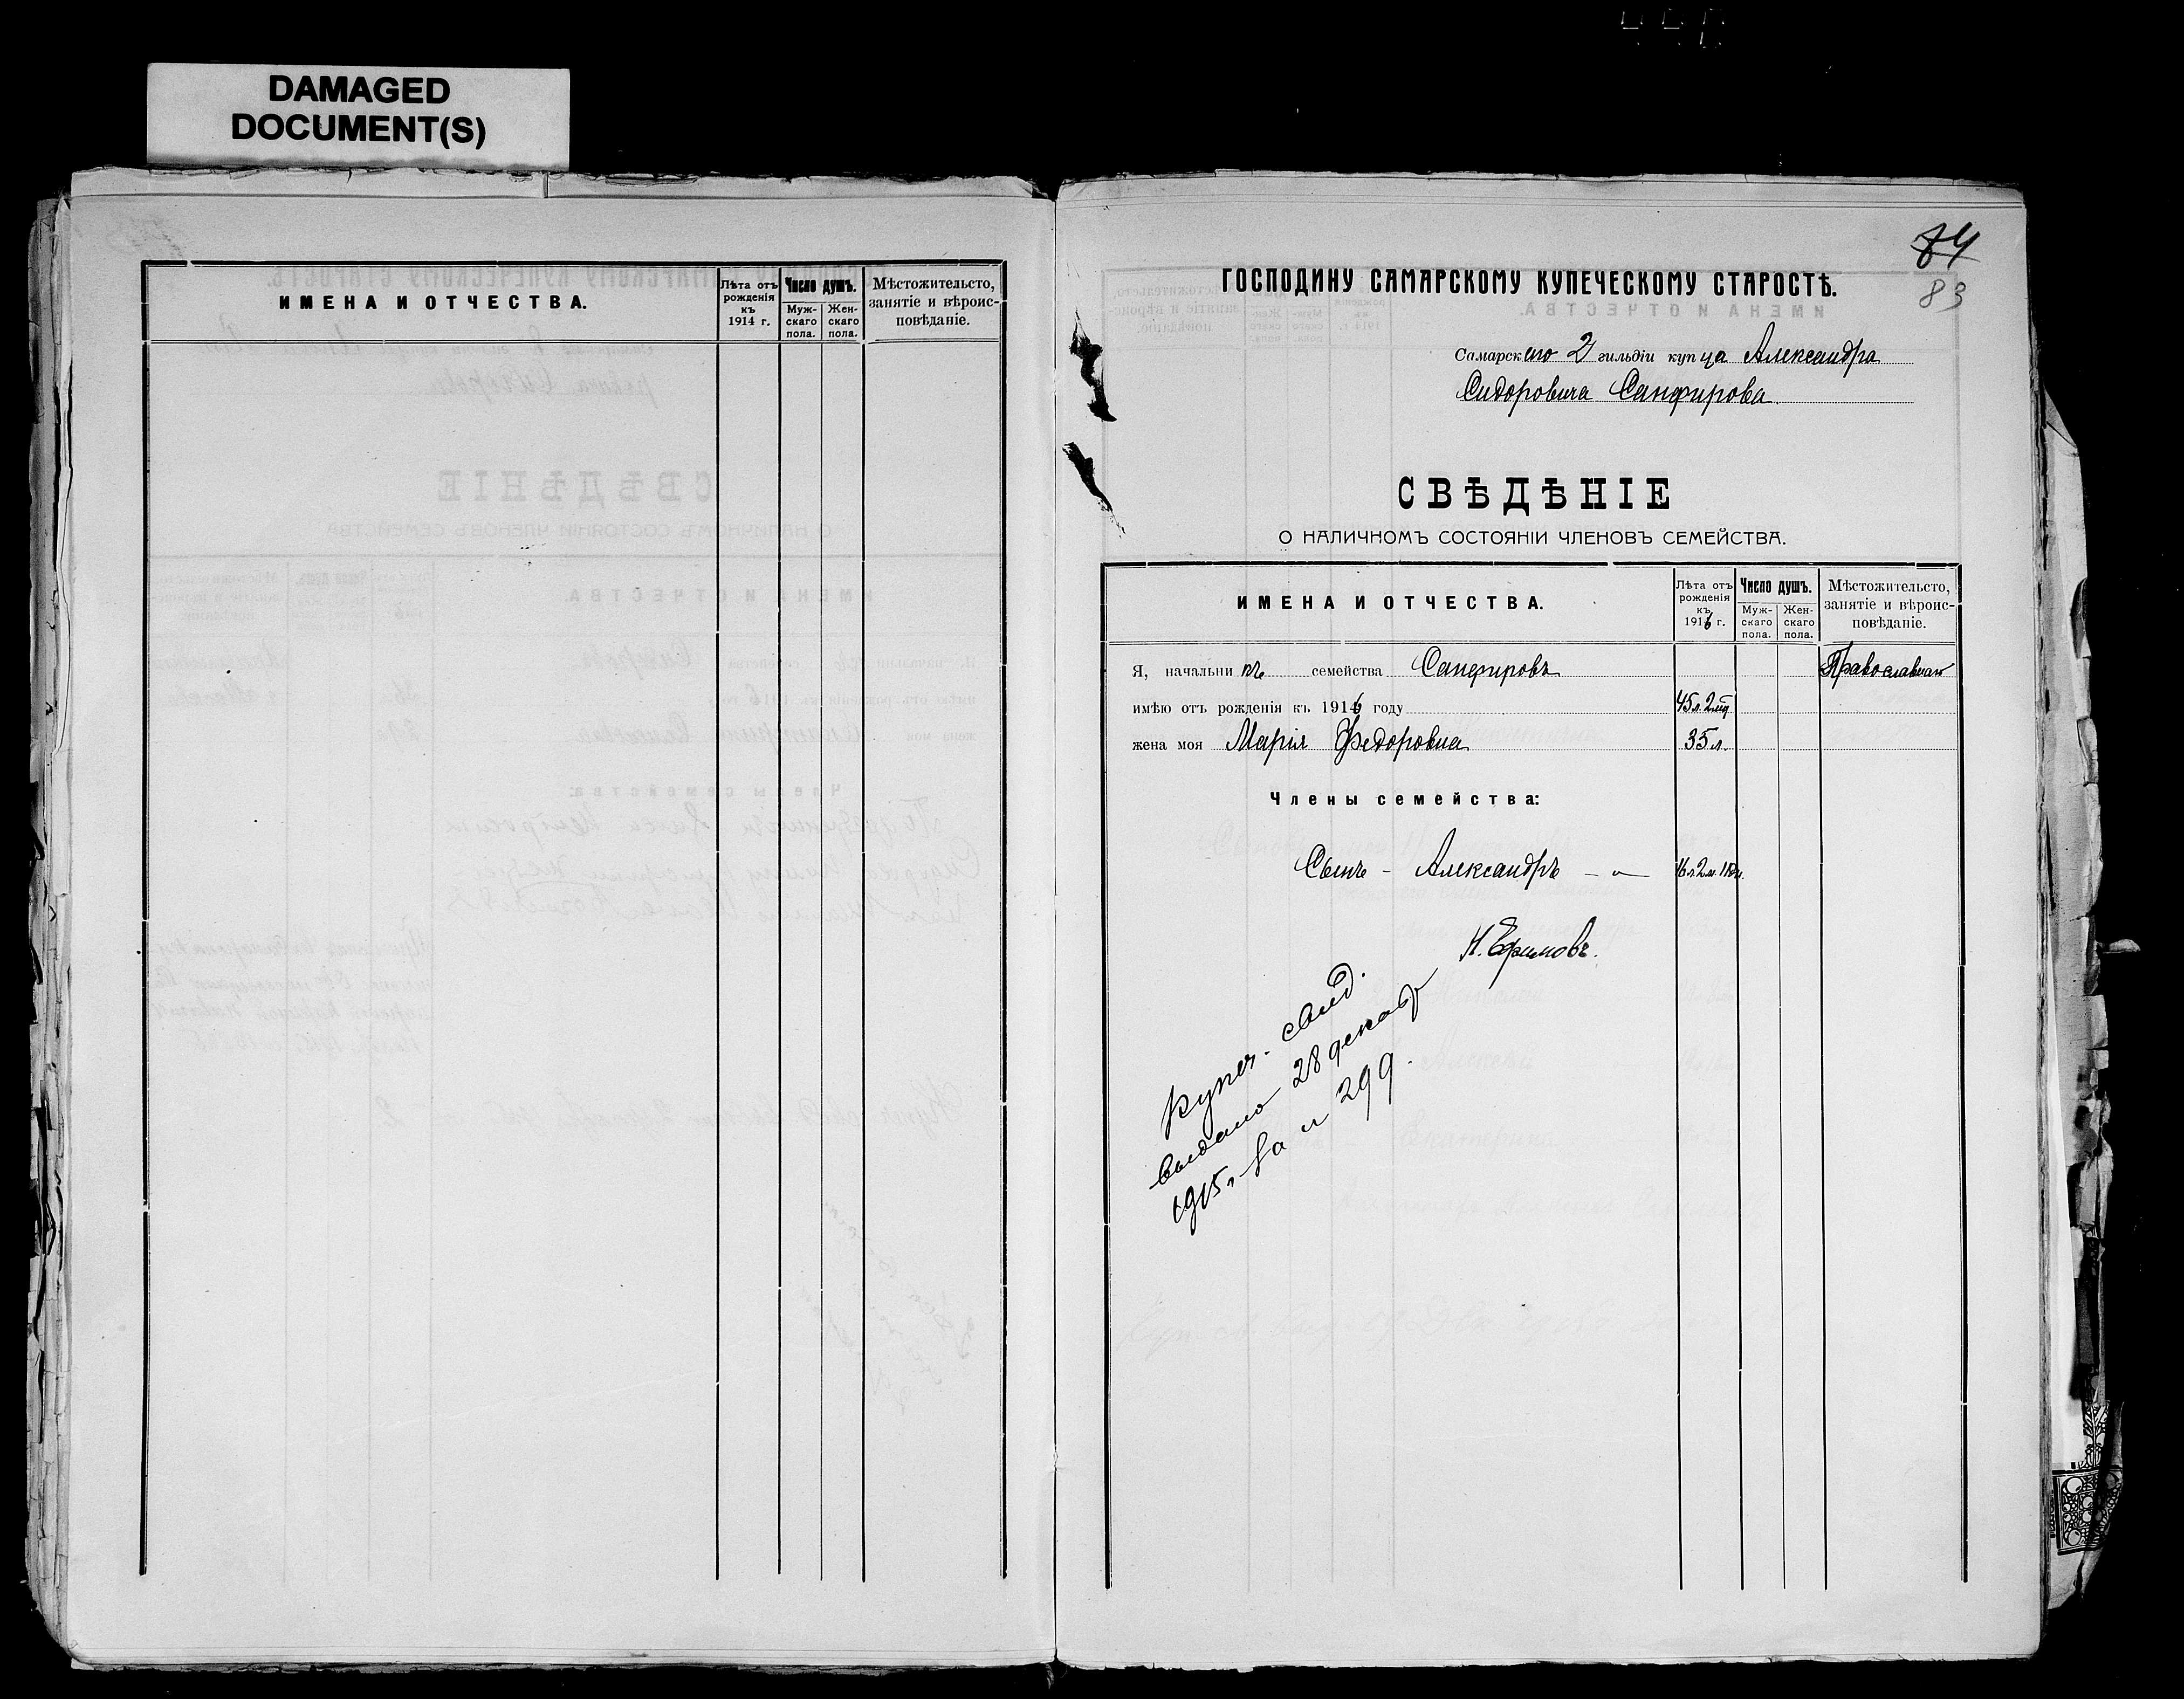 DAMAGED
DOCUMENT(S)
ИМЕНА И ОТЧЕСТВА.
Лѣта отъ рожденія къ 1914 г.
Число душъ.
Муж-скаго пола.
Жен-скаго пола.
Мѣстожительсто, занятіе и вѣроис-повѣданіе.
84
83
ГОСПОДИНУ САМАРСКОМУ КУПЕЧЕСКОМУ СТАРОСТѢ.
Самарскаго 2 гильдіи купца Александра
Сидоровича Санфирова
СВѢДѢНІЕ
О НАЛИЧНОМЪ СОСТОЯНІИ ЧЛЕНОВЪ СЕМЕЙСТВА.
ИМЕНА И ОТЧЕСТВА.
Лѣта отъ рожденія къ 1916 г.
Число душъ.
Муж-скаго пола.
Жен-скаго пола.
Мѣстожительсто, занятіе и вѣроис-повѣданіе.
Я, начальникъ семейства Санфировъ Православнаго
имѣю отъ рожденія къ 1916 году 45 л. 2
жена моя Марія Федоровна 35 л.
Члены семейства:
Сынъ - Александръ - 16 л. 2 м.
Н. Ефимовъ.
Купеч. свид.
выдано 28 декабр
1915 г. за № 299.